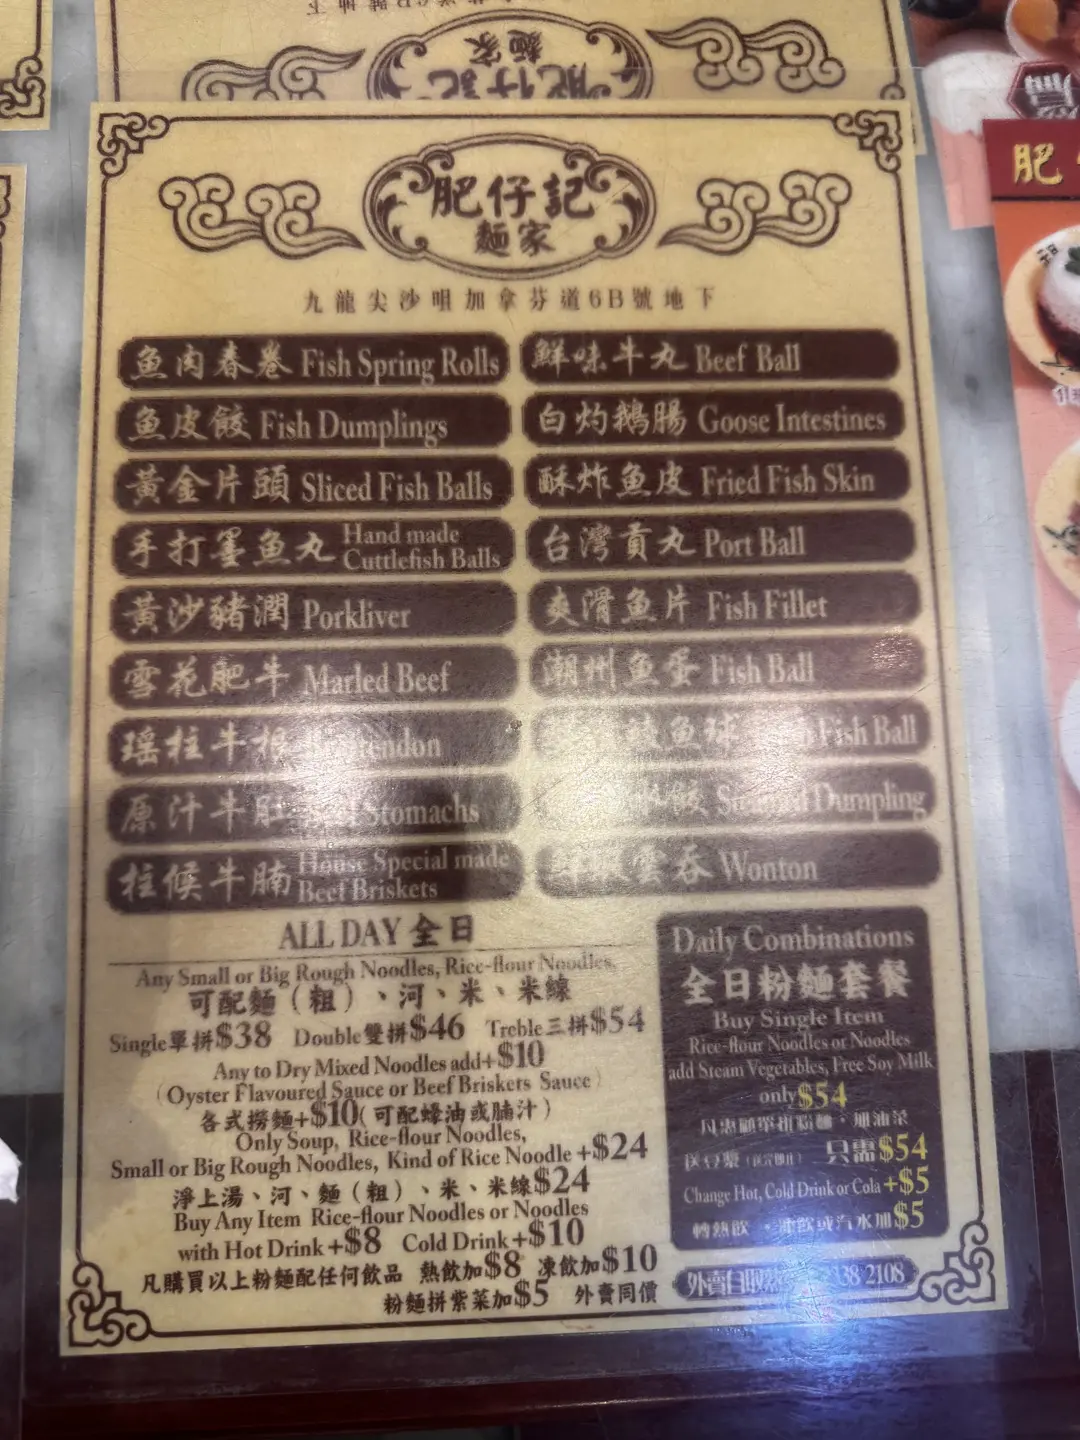 肥仔記
麵家
九龍尖沙咀加拿芬道6B號地下
魚肉春卷 Fish Spring Rolls
魚皮餃 Fish Dumplings
黃金片頭 Sliced Fish Balls
手打墨魚丸 Hand made
Cuttlefish Balls
黃沙豬潤 Porkliver
雪花肥牛 Marled Beef
瑤柱牛
原汁牛肚 Stomachs
柱候牛腩 House Special made
Beef Briskets
鮮味牛丸 Beef Ball
白灼鵝腸 Goose Intestines
酥炸魚皮 Fried Fish Skin
台灣貢丸 Port Ball
爽滑魚片 Fish Fillet
潮州魚蛋 Fish Ball
鯪魚球 Fish Ball
餃 Dumpling
雲吞 Wonton
ALL DAY 全日
Any Small or Big Rough Noodles, Rice-flour Noodles,
可配麵（粗）、河、米、米線
Single單拼$38 Double雙拼$46 Treble三拼$54
Any to Dry Mixed Noodles add+$10
(Oyster Flavoured Sauce or Beef Briskets Sauce)
各式撈麵+$10(可配蠔油或腩汁)
Only Soup, Rice-flour Noodles,
Small or Big Rough Noodles, Kind of Rice Noodle +$24
淨上湯、河、麵（粗）、米、米線$24
Buy Any Item Rice-flour Noodles or Noodles
with Hot Drink+$8 Cold Drink+$10
凡購買以上粉麵配任何飲品 熱飲加$8 凍飲加$10
粉麵拼紫菜加$5 外賣同價
Daily Combinations
全日粉麵套餐
Buy Single Item
Rice-flour Noodles or Noodles
add Steam Vegetables, Free Soy Milk
only$54
凡惠顧單拼粉麵，加油菜
送豆漿 只需$54
Change Hot, Cold Drink or Cola+$5
轉熱飲、凍飲或汽水加$5
外賣自取 2108
肥